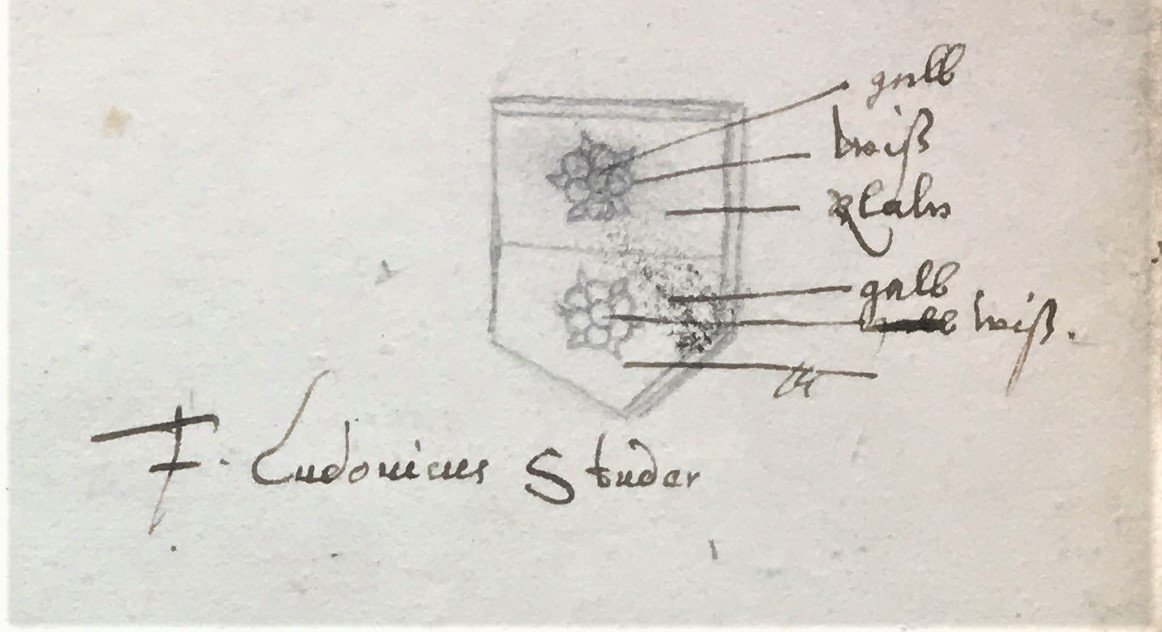 galb
weiß
blaw
galb
weiß.
F. Ludouicus Studer